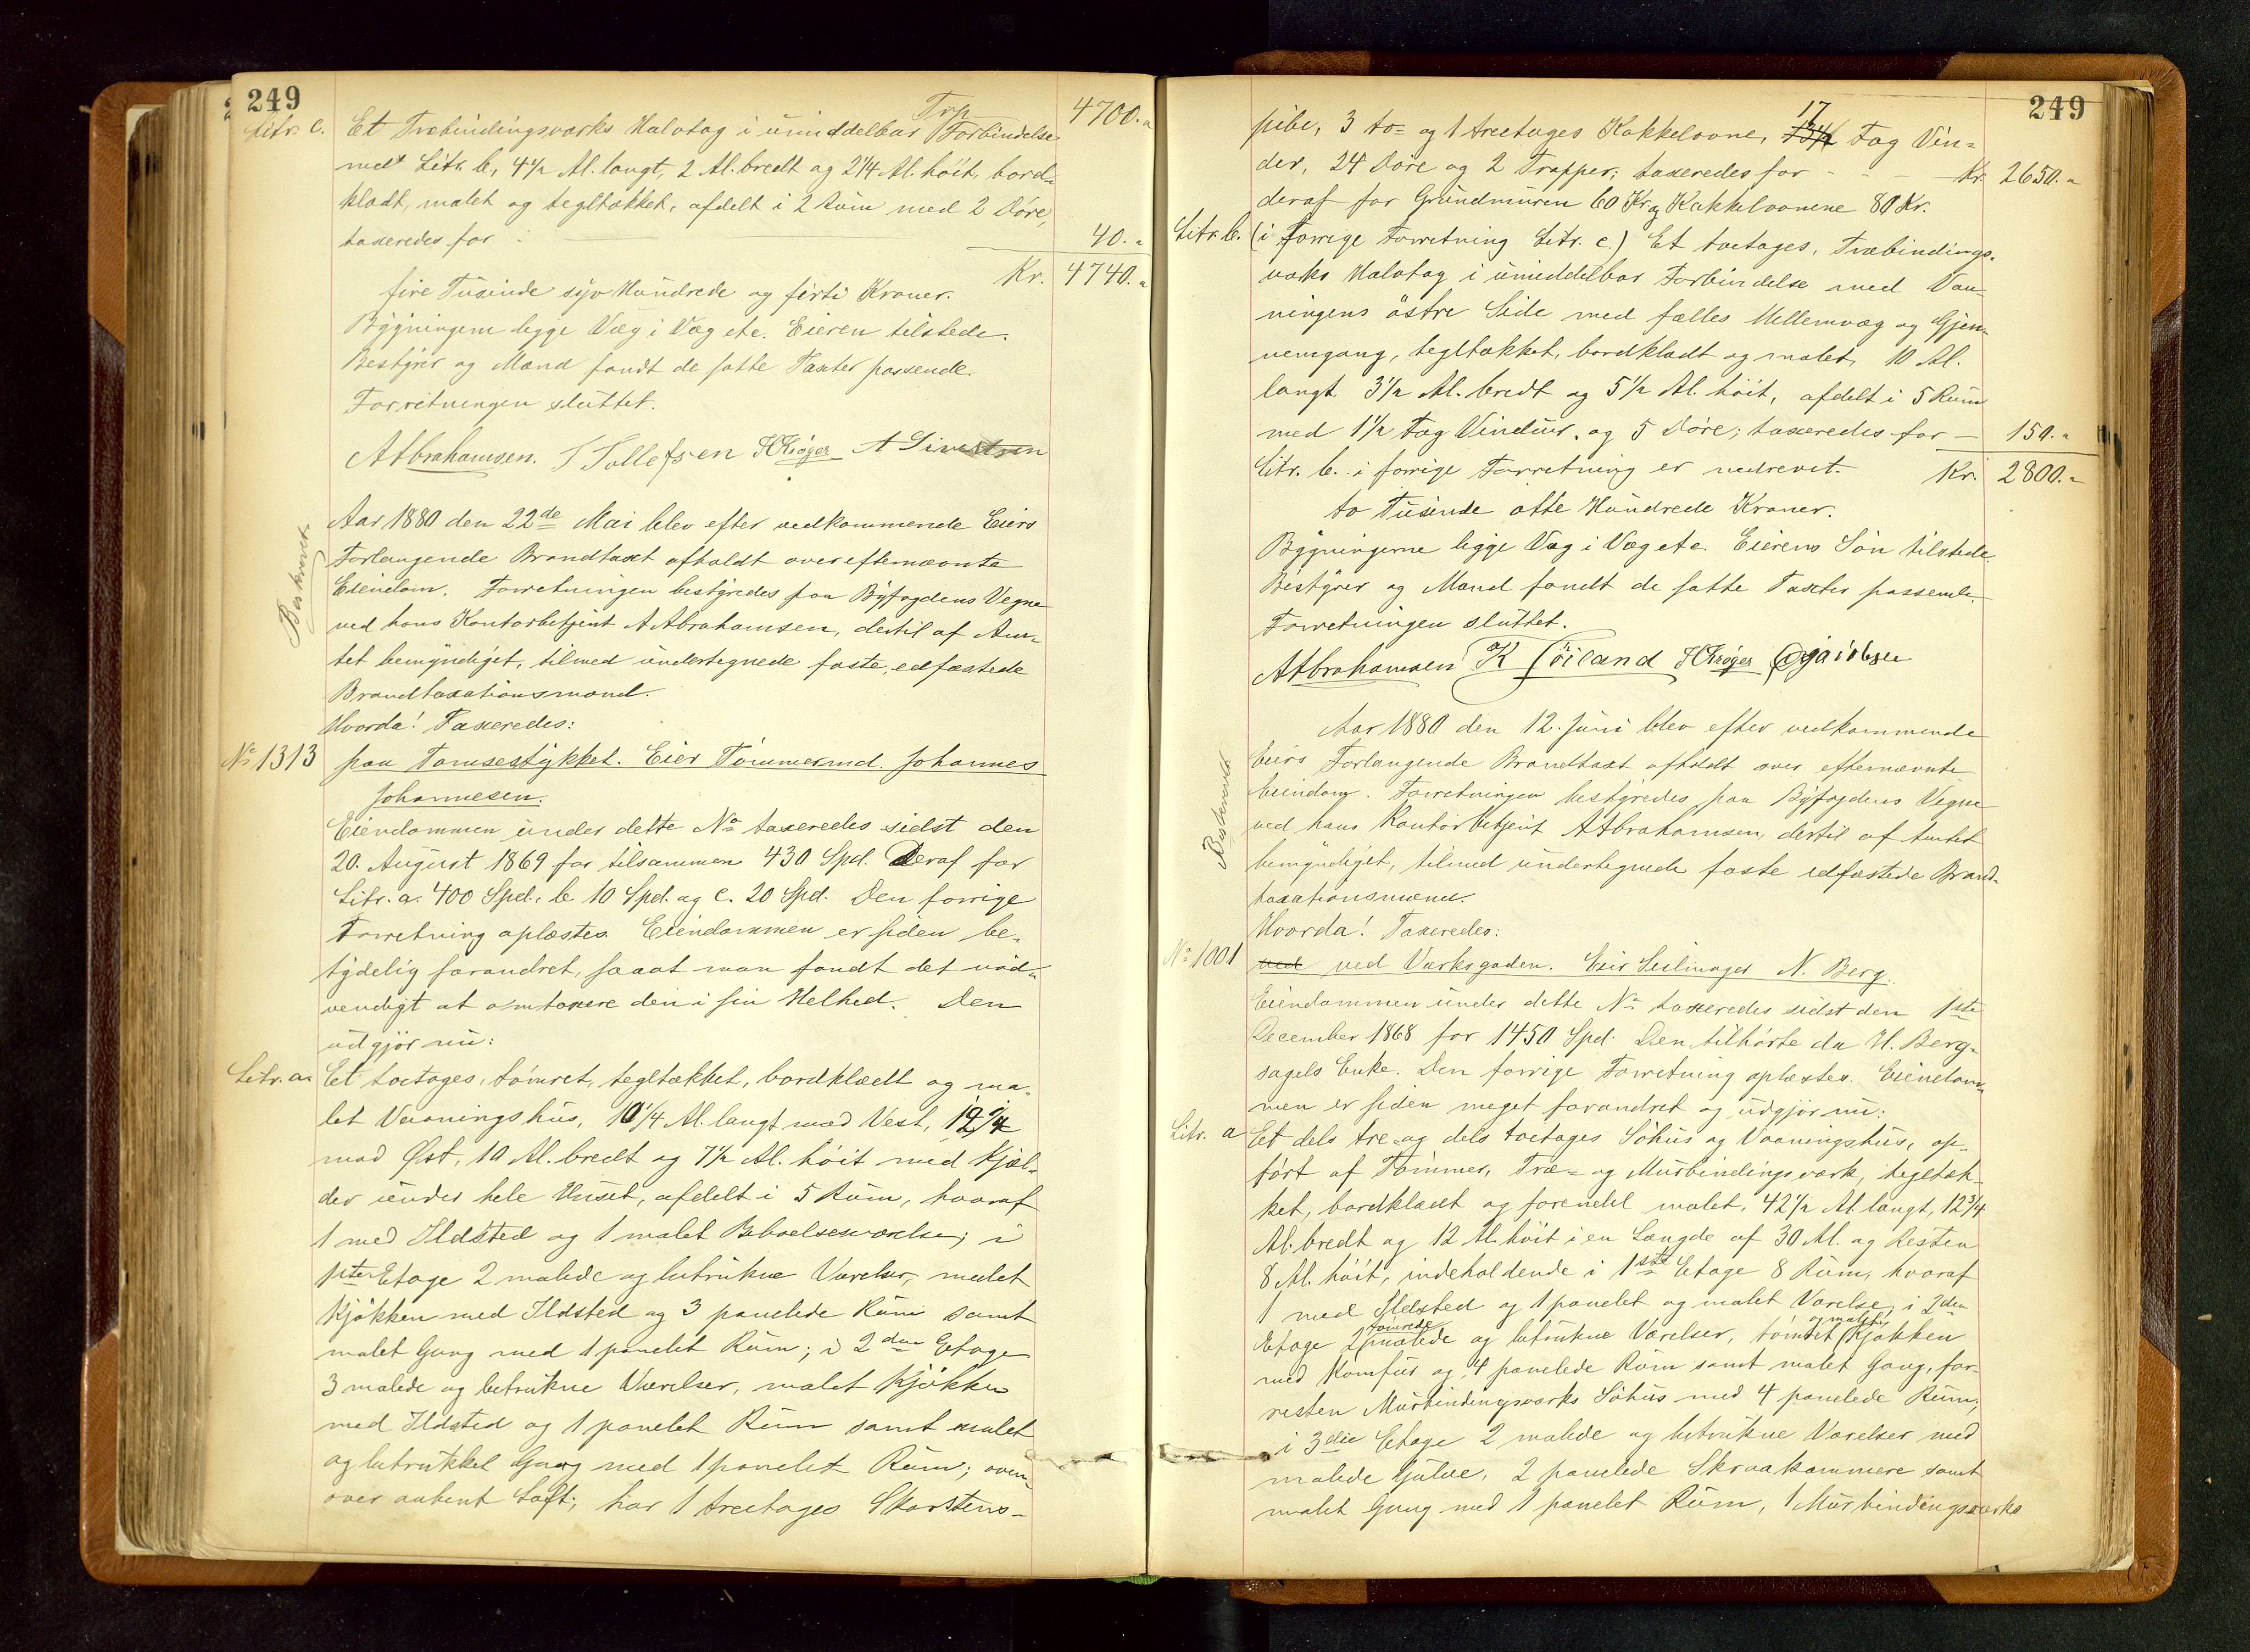 249
Trp 4700."
Litr. c. Et Træbindingsværks Halvtag i umiddelbar Forbindelse
med Litr. b, 4 1/2 Al. langt, 2 Al. bredt og 2 1/4 Al. höit, bord-
klædt, malet og tegltækket, afdelt i 2 Rum med 2 Döre,
taxeredes for 40."
Kr. 4740."
fire Tusinde syv Hundrede og firti Kroner.
Bygningerne ligge Væg i Væg etc. Eieren tilstede.
Bestyrer og Mænd fandt de satte Taxter passende.
Forretningen sluttet.
AAbrahamsen. T Tollefsen HKröger A Sivertsen
Beskrevet
Aar 1880 den 22de Mai blev efter vedkommende Eiers
Forlangende Brandtaxt afholdt over efternævnte
Eiendom. Forretningen bestyredes paa Byfogdens Vegne
ved hans Kontorbetjent AAbrahamsen, dertil af Am-
tet bemyndiget, tilmed undertegnede faste, edfæstede
Brandtaxationsmænd.
Hvorda! Taxeredes:
No 1313 paa Tamsestykket. Eier Tömmermd. Johannes
Johannesen.
Eiendommen under dette No taxeredes sidst den
20. August 1869 for tilsammen 430 Spd. Deraf for
Litr. a. 400 Spd., b. 10 Spd. og c. 20 Spd. Den forrige
Forretning oplæstes. Eiendommen er siden be-
tydelig forandret, saaat man fandt det nöd-
vendigt at omtaxere den i sin Helhed. Den
udgjör nu:
Litr. a. Et toetages, tömret, tegltækket, bordklædt og ma-
let Vaaningshus, 10 1/4 Al. langt mod Vest, 12 1/4
mod Øst, 10 Al. bredt og 7 1/2 Al. höit med Kjæl-
der under hele Huset, afdelt i 5 Rum, hvoraf
1 med Ildsted og 1 malet Beboelsesværelse; i
1ste Etage 2 malede og betrukne Værelser, malet
Kjökken med Ildsted og 3 panelede Rum samt
malet Gang med 1 panelet Rum; i 2den Etage
3 malede og betrukne Værelser, malet Kjökken
med Ildsted og 1 panelet Rum samt malet
og betrukket Gang med 1 panelet Rum; oven-
over aabent Loft; har 1 treetages Skorstens-
249
pibe, 3 to- og 1 treetages Kakkelovne, 17 Fag Vin-
der, 24 Döre og 2 Trapper; taxeredes for - - - Kr. 2650."
deraf for Grundmuren 60 Kr. og Kakkelovnene 80 Kr.
Litr. b. (i forrige Forretning Litr. c.) Et toetages, Træbindings-
værks Halvtag i umiddelbar Forbindelse med Vaa-
ningens östre Side med fælles Mellemvæg og Gjen-
nemgang, tegltækket, bordklædt og malet, 10 Al.
langt 3 1/2 Al. bredt og 5 1/2 Al. höit, afdelt i 5 Rum
med 1 1/2 Fag Vinduer, og 5 Döre; taxeredes for - 150."
Litr. b. i forrige Forretning er nedrevet. Kr. 2800."
to Tusinde otte Hundrede Kroner.
Bygningerne ligge Væg i Væg etc. Eierens Sön tilstede.
Bestyrer og Mænd fandt de satte Taxter passende.
Forretningen sluttet.
AAbrahamsen K Höiland HKröger Jacobsen
Beskrevet
Aar 1880 den 12. Juni blev efter vedkommende
Eiers Forlangende Brandtaxt afholdt over efternævnte
Eiendom. Forretningen bestyredes paa Byfogdens Vegne
ved hans Kontorbetjent AAbrahamsen, dertil af Amtet
bemyndiget, tilmed undertegnede faste edfæstede Brand-
taxationsmænd.
Hvorda! Taxeredes:
No 1001 ved ved Værksgaden. Eier Seilmager N. Berg.
Eiendommen under dette No taxeredes sidst den 1ste
December 1868 for 1450 Spd. Den tilhörte da H. Berg-
sagels Enke. Den forrige Forretning oplæstes. Eiendom-
men er siden meget forandret og udgjör nu:
Litr. a Et dels tre- og dels toetages Söhus og Vaaningshus, op-
fört af Tömmer, Træ- og Murbindingsværk, tegltæk-
ket, bordklædt og forendel malet, 42 1/2 Al. langt, 12 3/4
Al. bredt og 12 Al. höit i en Længde af 30 Al. og Resten
8 Al. höit, indeholdende i 1ste Etage 8 Rum, hvoraf
1 med Ildsted og 1 panelet og malet Værelse, i 2den
Etage 2 tömrede malede og betrukne Værelser, tömret og malet Kjökken
med Komfur og 4 panelede Rum samt malet Gang, for-
resten Murbindingsværks Söhus med 4 panelede Rum;
i 3die Etage 2 malede og betrukne Værelser med
malede Gulve, 2 panelede Skraakammere samt
malet Gang med 1 panelet Rum, 1 Murbindingsværks